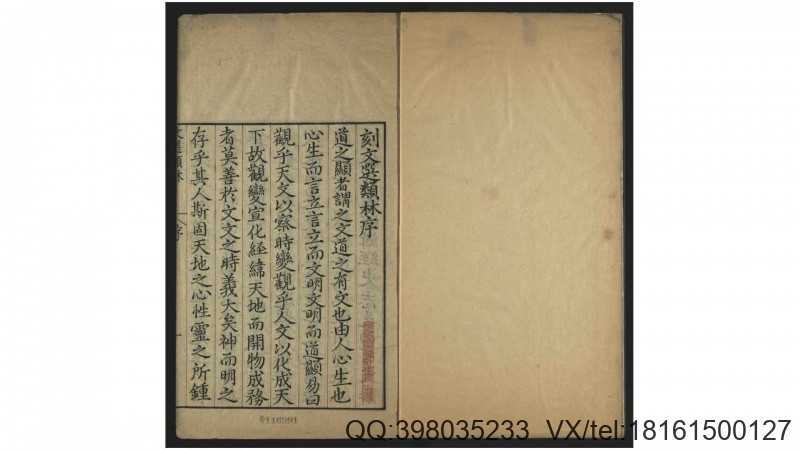 刻文選類林序
道之顯者謂之文道之有文也由人心生也
心生而言立言立而文明文明而道顯易曰
觀乎天文以察時變觀乎人文以化成天
下故觀變宣化經緯天地而開物成務
者莫善於文文之時義大矣神而明之
存乎其人斯固天地之心性靈之所鍾
文選類林
序
一
QQ:398035233 VX/tel:18161500127